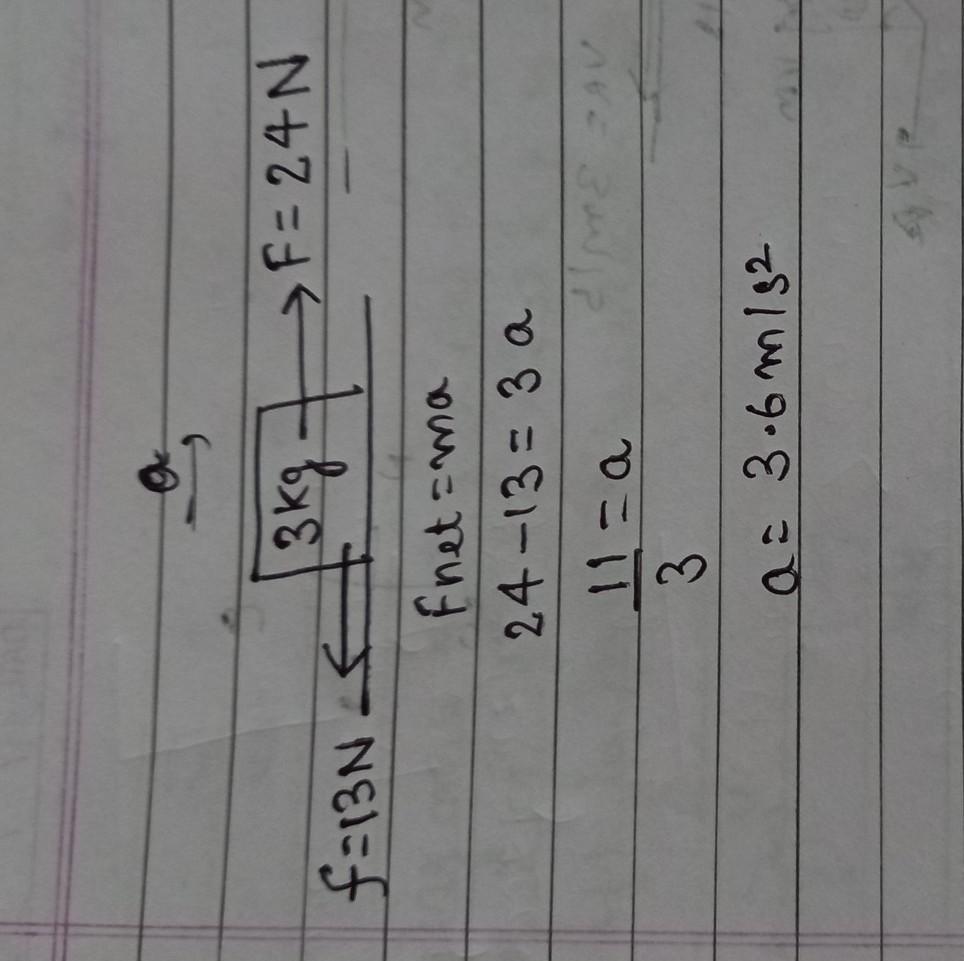 a
3kg F = 24N
f = 13N
fnet = ma
24 - 13 = 3 a
11 = a
3
a = 3.6 m/s²